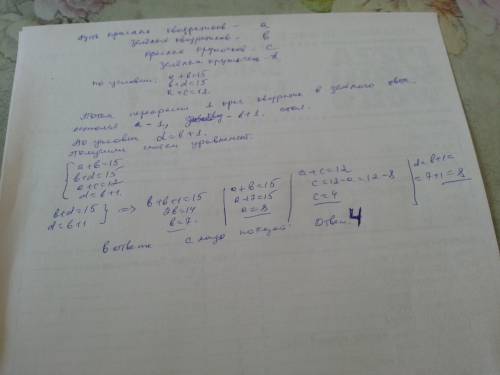 Пусть красных квадратиков - a
зелёных квадратиков - b
красных кружочков - c
зелёных кружочков - d
по условию: a+b=15
b+d=15
a+c=12
Потом перекрасили 1 крас квадратик в зелёного цвет.
a-1, b+1. стал.
По условию d=b+1.
Получили систем уравнений.
a+b=15
b+d=15
a+c=12
d=b+1.
b+d=15
d=b+1 => b+b+1=15
2b=14
b=7.
a+b=15
a+7=15
a=8
a+c=12
c=12-a=12-8
c=4
d=b+1=
=7+1=8
В ответе c надо Ответ 4